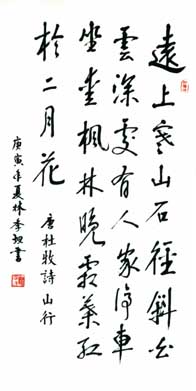 遠上寒山石徑斜白
雲深處有人家停車
坐愛楓林晚霜葉紅
於二月花 唐杜牧詩山行
庚寅年夏林書